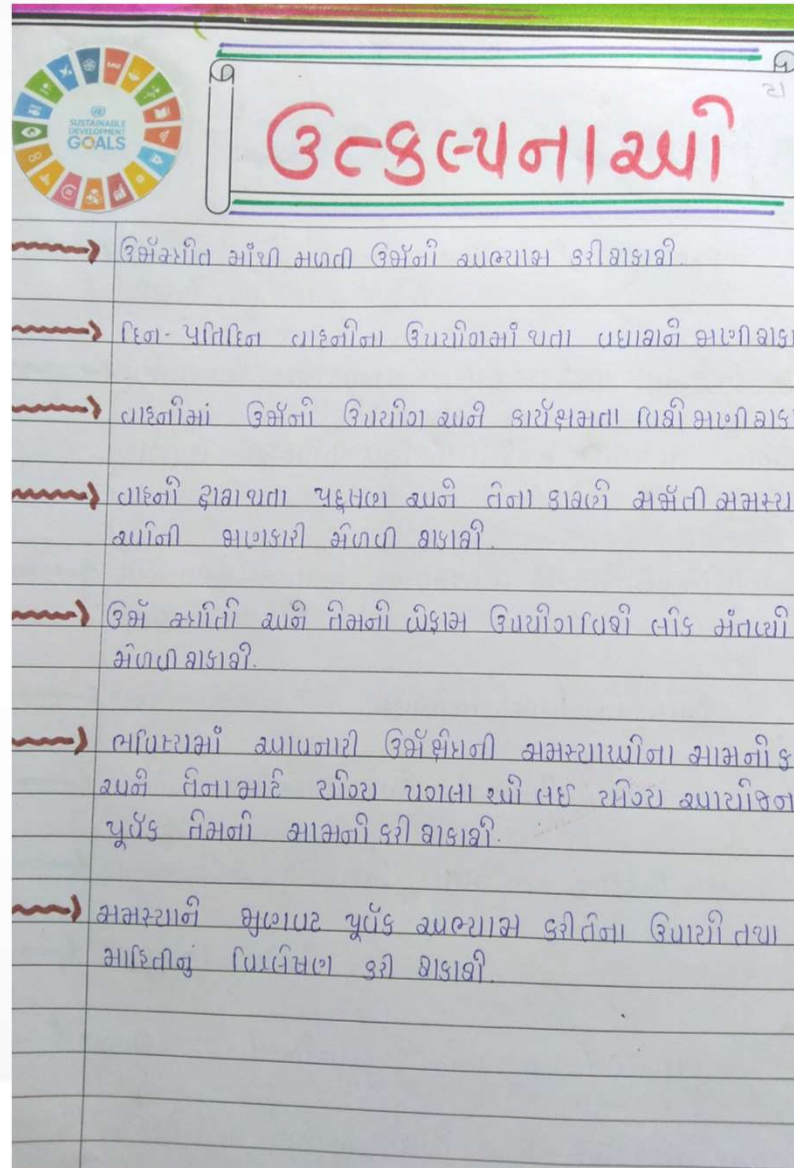 SUSTAINABLE
DEVELOPMENT
GOALS
ઉત્કલ્પનાઓ
ઉર્જાસ્ત્રોત માંથી મળતી ઉર્જાનો અભ્યાસ કરી શકાશે.
દિન-પ્રતિદિન વાહનોના ઉપયોગમાં થતા વધારાને જાણી શકા
વાહનોમાં ઉર્જાનો ઉપયોગ અને કાર્યક્ષમતા વિશે જાણી શકા
વાહનો દ્વારા થતા પ્રદૂષણ અને તેના કારણે સર્જાતી સમસ્યા
ઓની જાણકારી મેળવી શકાશે.
ઉર્જા સ્ત્રોતો અને તેમની બેફામ ઉપયોગ વિશે લોક મંતવ્યો
મેળવી શકાશે.
ભવિષ્યમાં આવનારી ઉર્જાક્ષેત્રની સમસ્યાઓના સામનો ક
અને તેના માટે યોગ્ય પગલા ઓ લઇ યોગ્ય આયોજન
પૂર્વક તેમનો સામનો કરી શકાશે.
સમસ્યાને પૂર્વક અભ્યાસ કરી તેના ઉપાયો તથા
માહિતીનું વિશ્લેષણ કરી શકાશે.